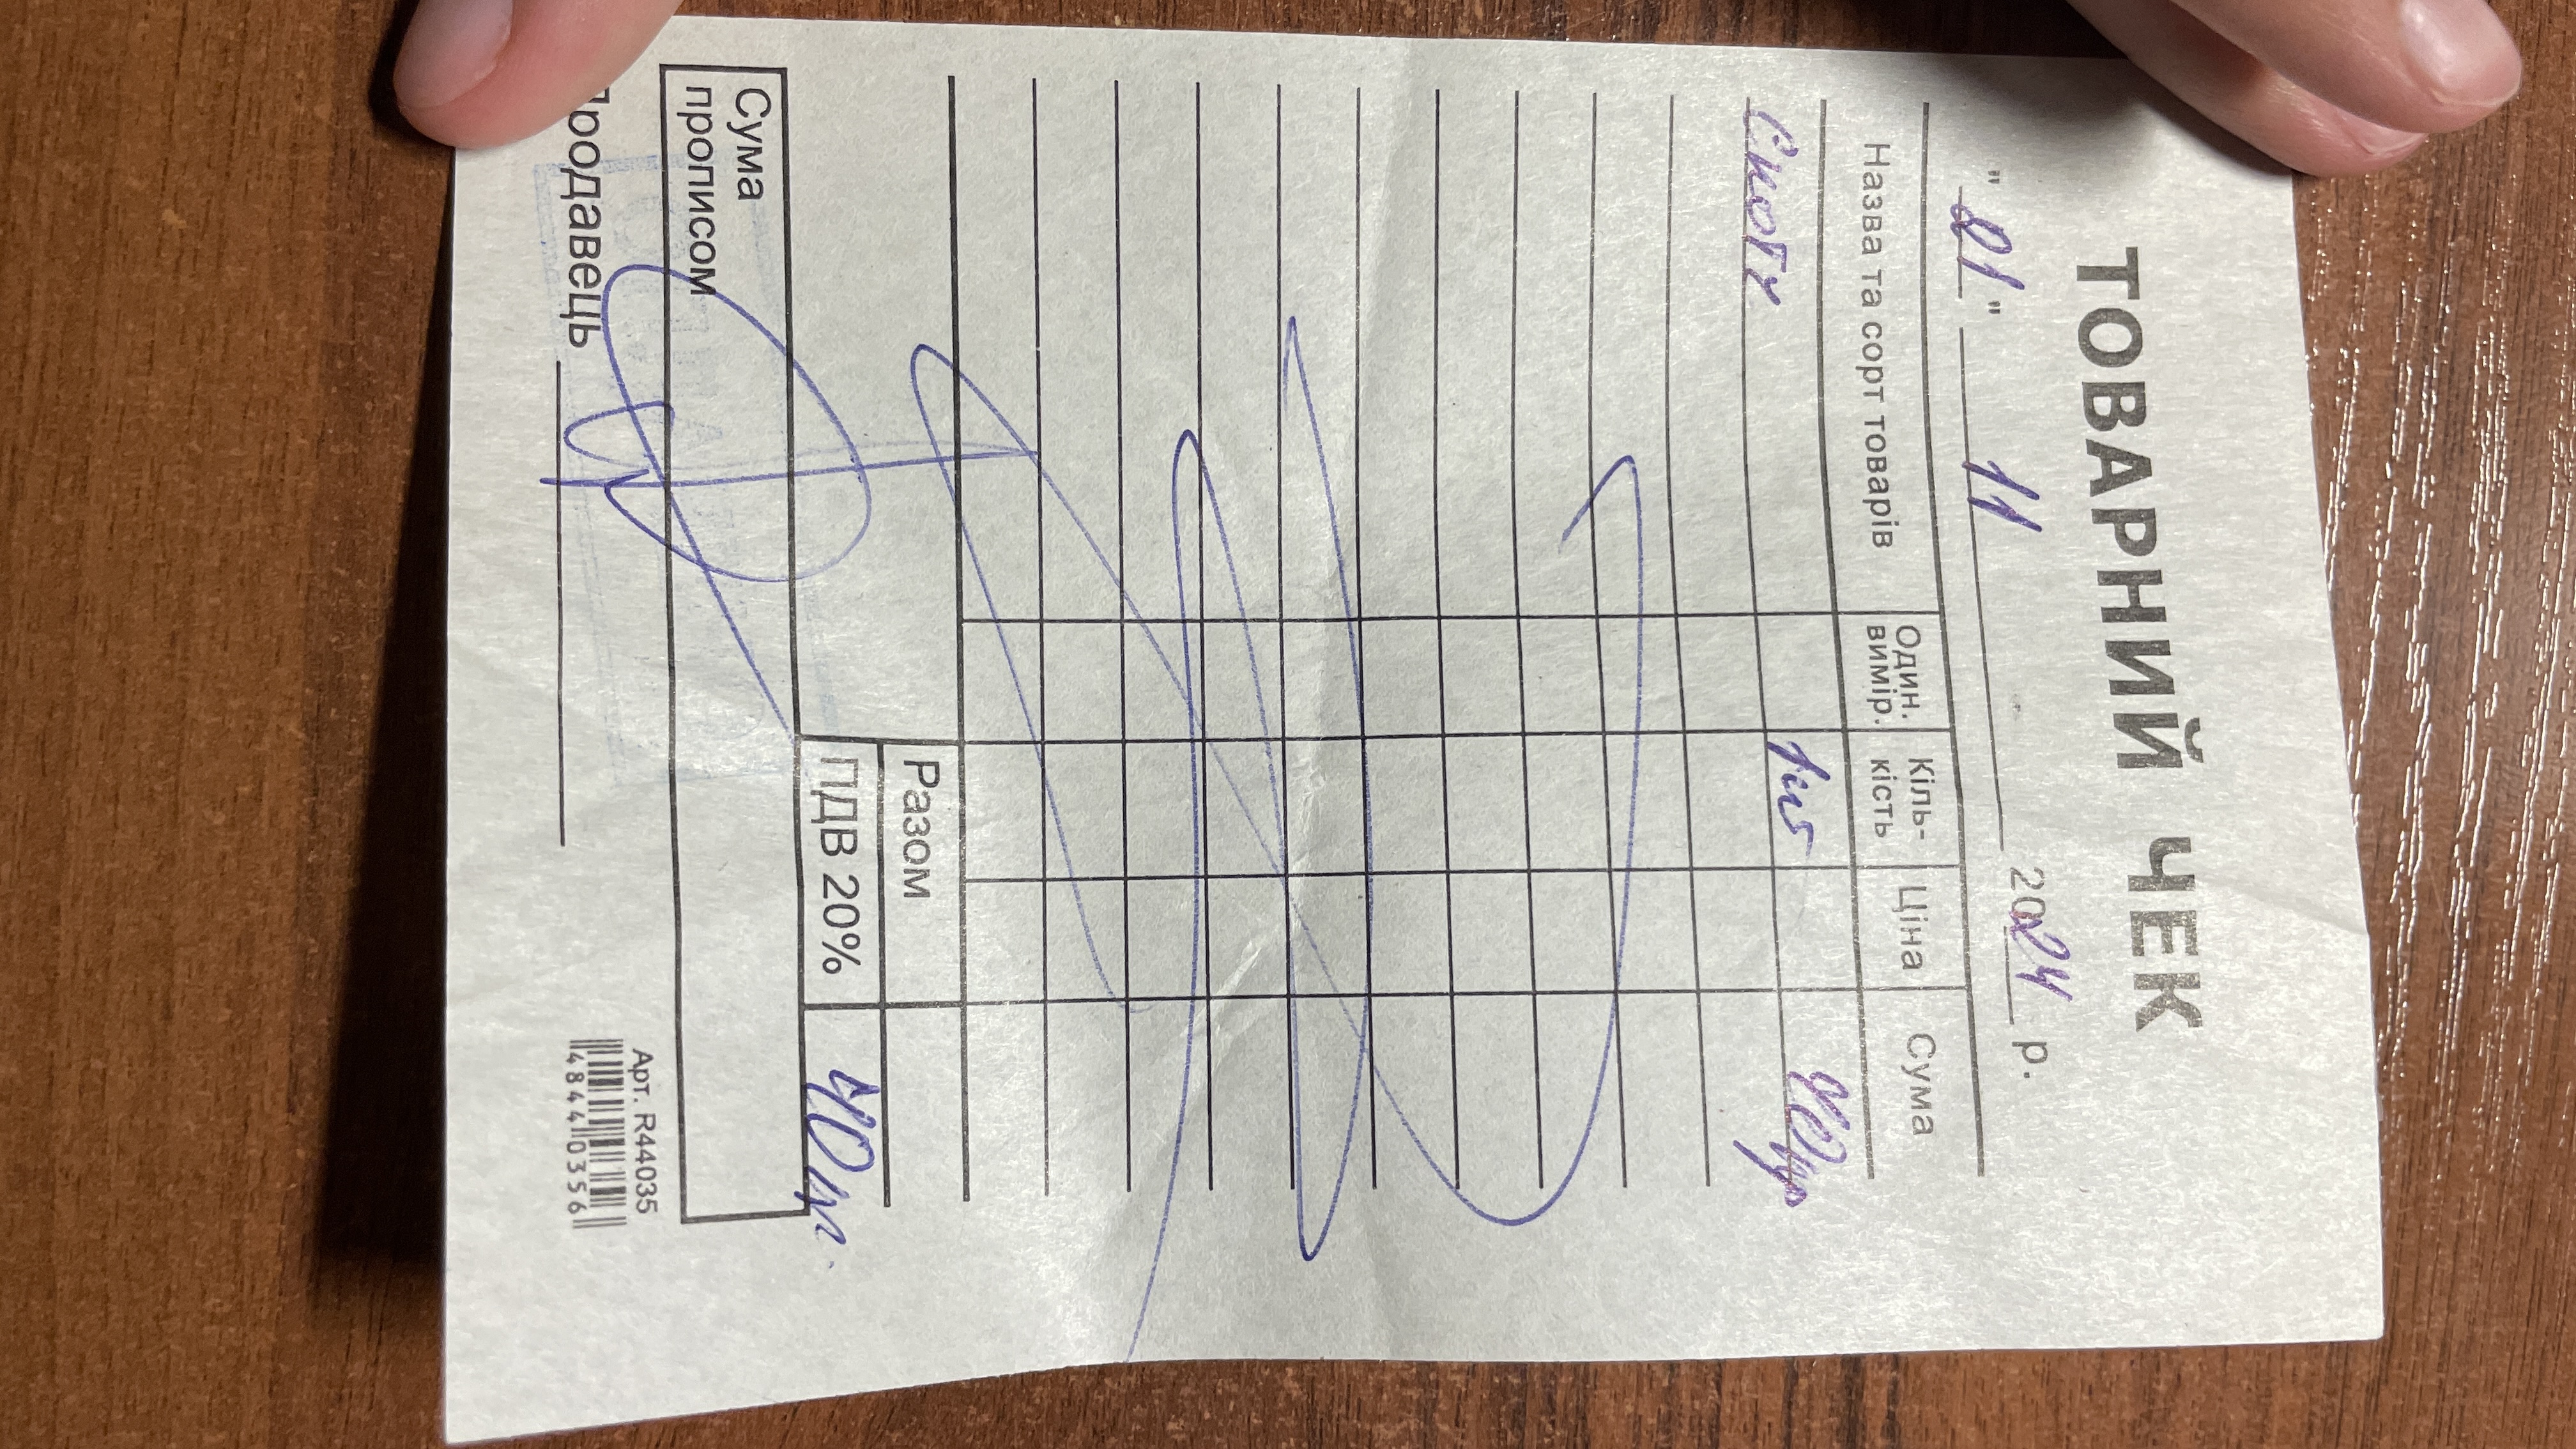 ТОВАРНИЙ ЧЕК
"21" 11 2024 р.
Назва та сорт товарів Один. вимір. Кіль-кість Ціна Сума
Скотч 1шт 40гр
Разом
ПДВ 20% 40гр.
Сума
прописом
Арт. R44035
Продавець
48440356